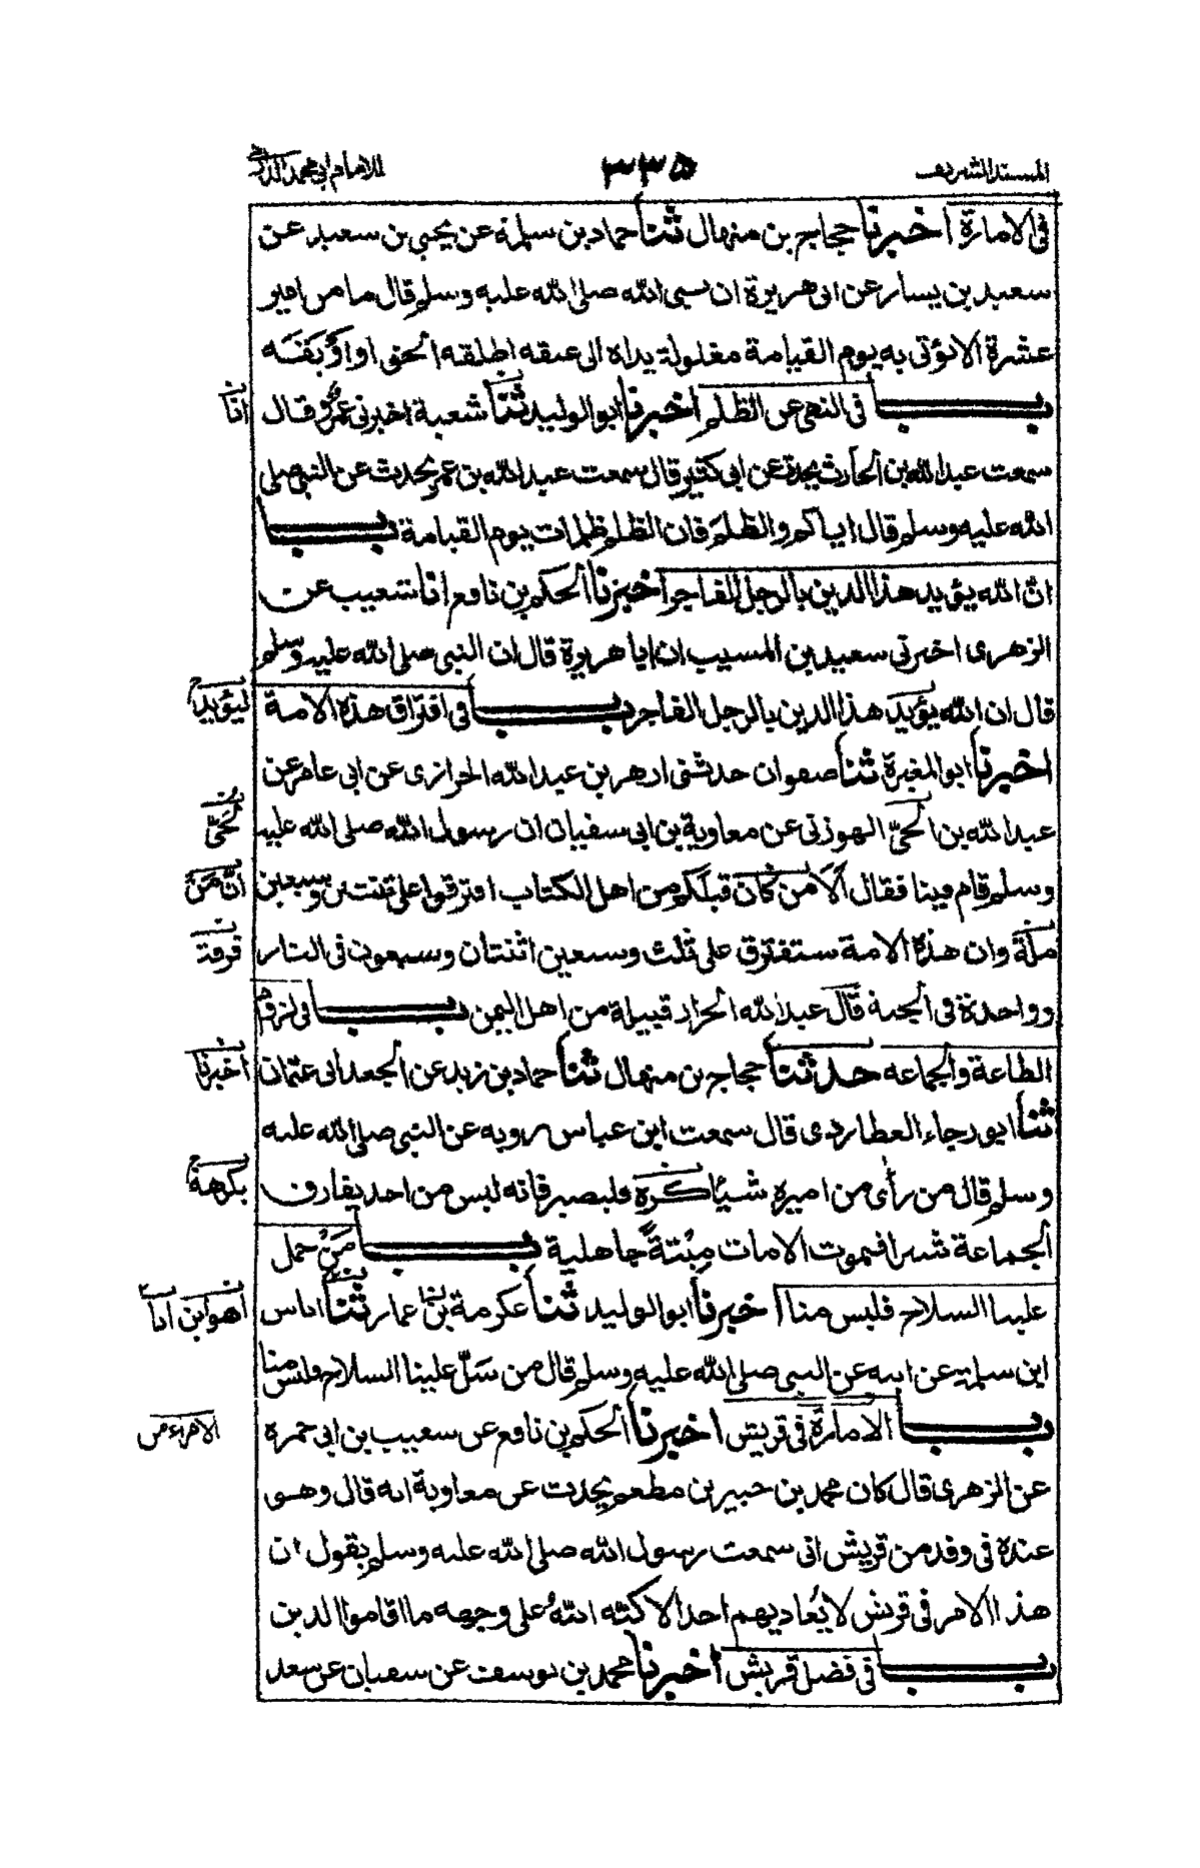 المسند الشريف ٣٣٥ للامام ابي محمد الدارمي
في الامارة اخبرنا حجاج بن منهال ثنا حماد بن سلمة عن يحيى بن سعيد عن
سعيد بن يسار عن ابي هريرة ان نبي الله صلى الله عليه وسلم قال ما من امير
عشرة الا يؤتى به يوم القيامة مغلولة يداه الى عنقه اطلقه الحق او اوبقه
باب في النهي عن الظلم اخبرنا ابو الوليد ثنا شعبة اخبرني عمرو قال
انا
سمعت عبد الله بن الحارث يحدث عن ابي كثير قال سمعت عبد الله بن عمرو يحدث عن النبي صلى
الله عليه وسلم قال اياكم والظلم فان الظلم ظلمات يوم القيامة باب
انّ الله يؤيد هذا الدين بالرجل الفاجر اخبرنا الحكم بن نافع انا شعيب عن
الزهري اخبرني سعيد بن المسيب ان ابا هريرة قال ان النبي صلى الله عليه وسلم
قال ان الله يؤيد هذا الدين بالرجل الفاجر باب في افتراق هذه الامة
ليؤيد
اخبرنا ابو المغيرة ثنا صفوان حدثني ازهر بن عبد الله الحرازي عن ابي عامر عن
عبد الله بن الحيّ الهوزني عن معاوية بن ابي سفيان ان رسول الله صلى الله عليه
لحيّ
وسلم قام فينا فقال اَلَا من كان قبلكم من اهل الكتاب افترقوا على ثنتين وسبعين
انّ مَن
ملة وان هذه الامة ستفترق على ثلث وسبعين اثنتان وسبعون في النار
فرقة
وواحدة في الجنة قال عبد الله الحراز قبيلة من اهل اليمن باب في لزوم
الطاعة والجماعة حدثنا حجاج بن منهال ثنا حماد بن زيد عن الجعد ابي عثمان
اخبرنا
ثنا ابو رجاء العطاردي قال سمعت ابن عباس يرويه عن النبي صلى الله عليه
وسلم قال من رأى من اميره شيئا كره فليصبر فانه ليس من احد يفارق
يكرهه
الجماعة شبرا فيموت الا مات مِيْتةً جاهلية باب مَنْ حمل
علينا السلاح فليس منا اخبرنا ابو الوليد ثنا عكرمة بن عمار ثنا اياس
اهو ابن
ابن سلمة عن ابيه عن النبي صلى الله عليه وسلم قال من سَلّ علينا السلاح فليس منا
باب الامارة في قريش اخبرنا الحكم بن نافع عن شعيب بن ابي حمزة
الامراء من
عن الزهري قال كان محمد بن جبير بن مطعم يحدث عن معاوية انه قال وهو
عنده في وفد من قريش اني سمعت رسول الله صلى الله عليه وسلم يقول ان
هذا الامر في قريش لا يُعاديهم احد الا كبّه اللهُ على وجهه ما اقاموا الدين
باب في فضل قريش اخبرنا محمد بن يوسف عن سفيان عن سعد